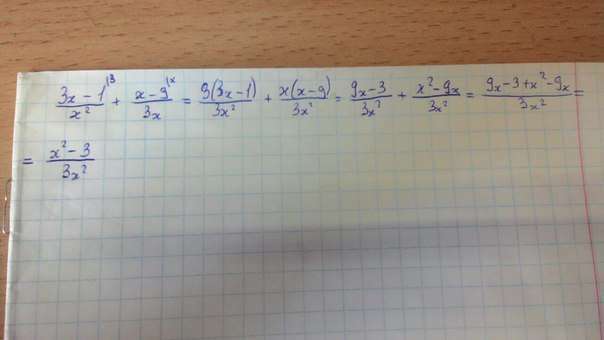 (3x - 1)/x² |3 + (x - 9)/3x |x = 3(3x - 1)/3x² + x(x - 9)/3x² = (9x - 3)/3x² + (x² - 9x)/3x² = (9x - 3 + x² - 9x)/3x² =
= (x² - 3)/3x²